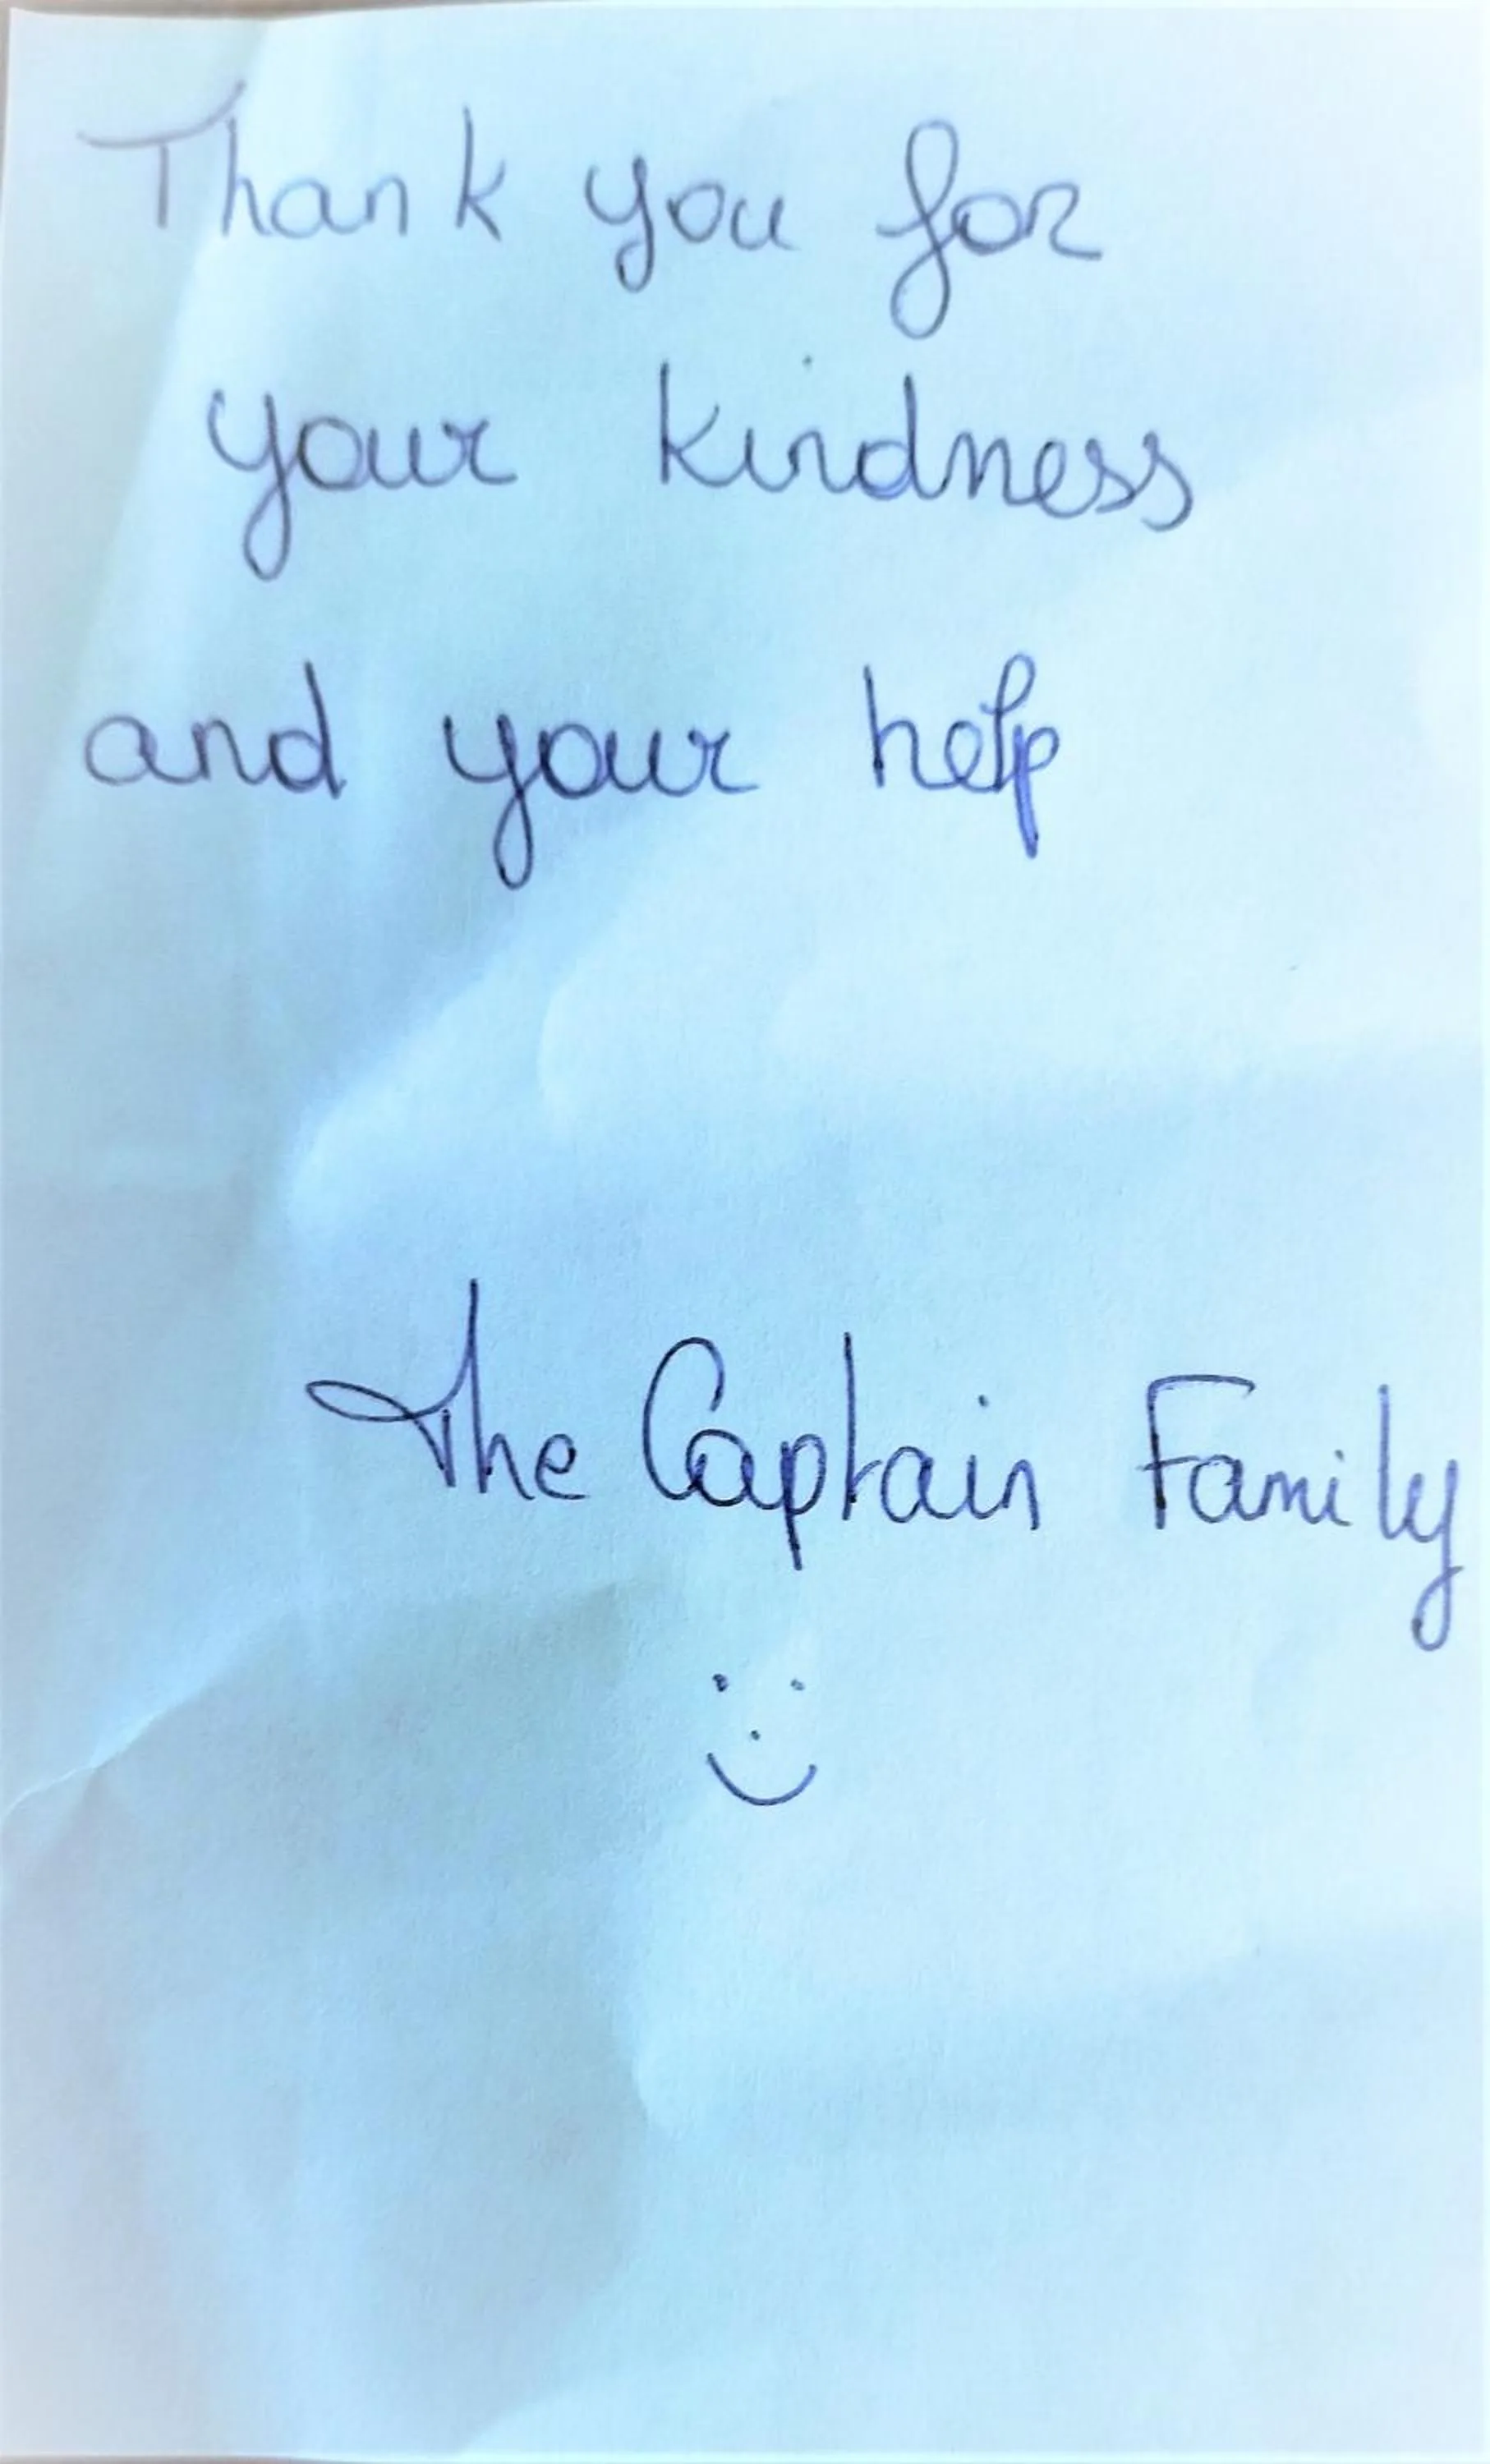 Thank you for
your kindness
and your help
The Captain Family